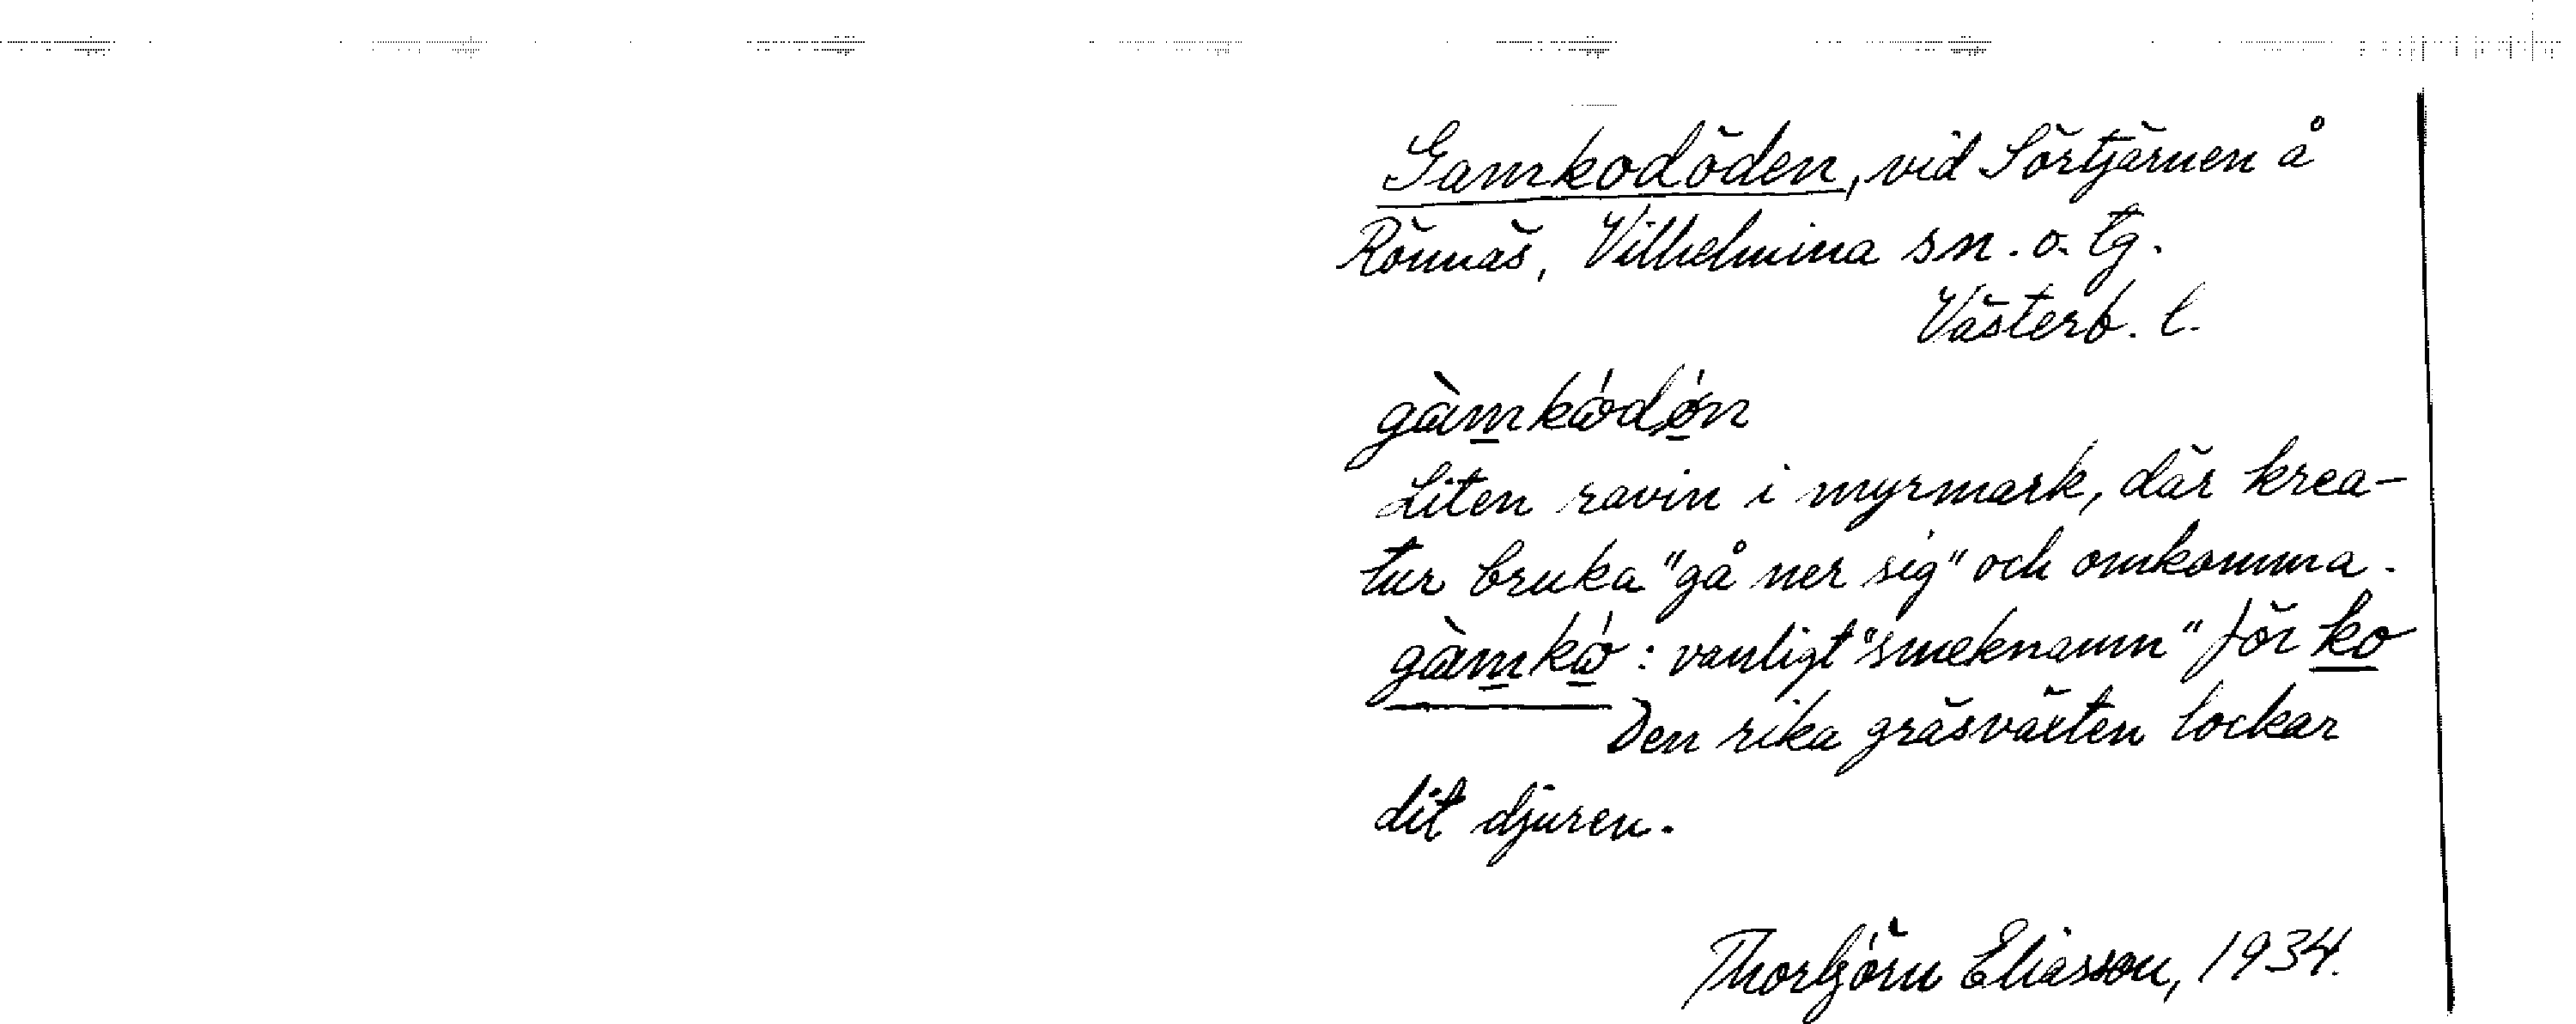 Gamkodöden, vid Sörtjärnen å
Rönnäs, Vilhelmina sn. o. tg.
Västerb. l.
gàmkódǿn
Liten ravin i myrmark, där krea-
tur bruka "gå ner sig" och omkomma.
gàmkó : vanligt "smeknamn" för ko
Den rika gräsväxten lockar
dit djuren.
Thorbjörn Eliasson, 1934.